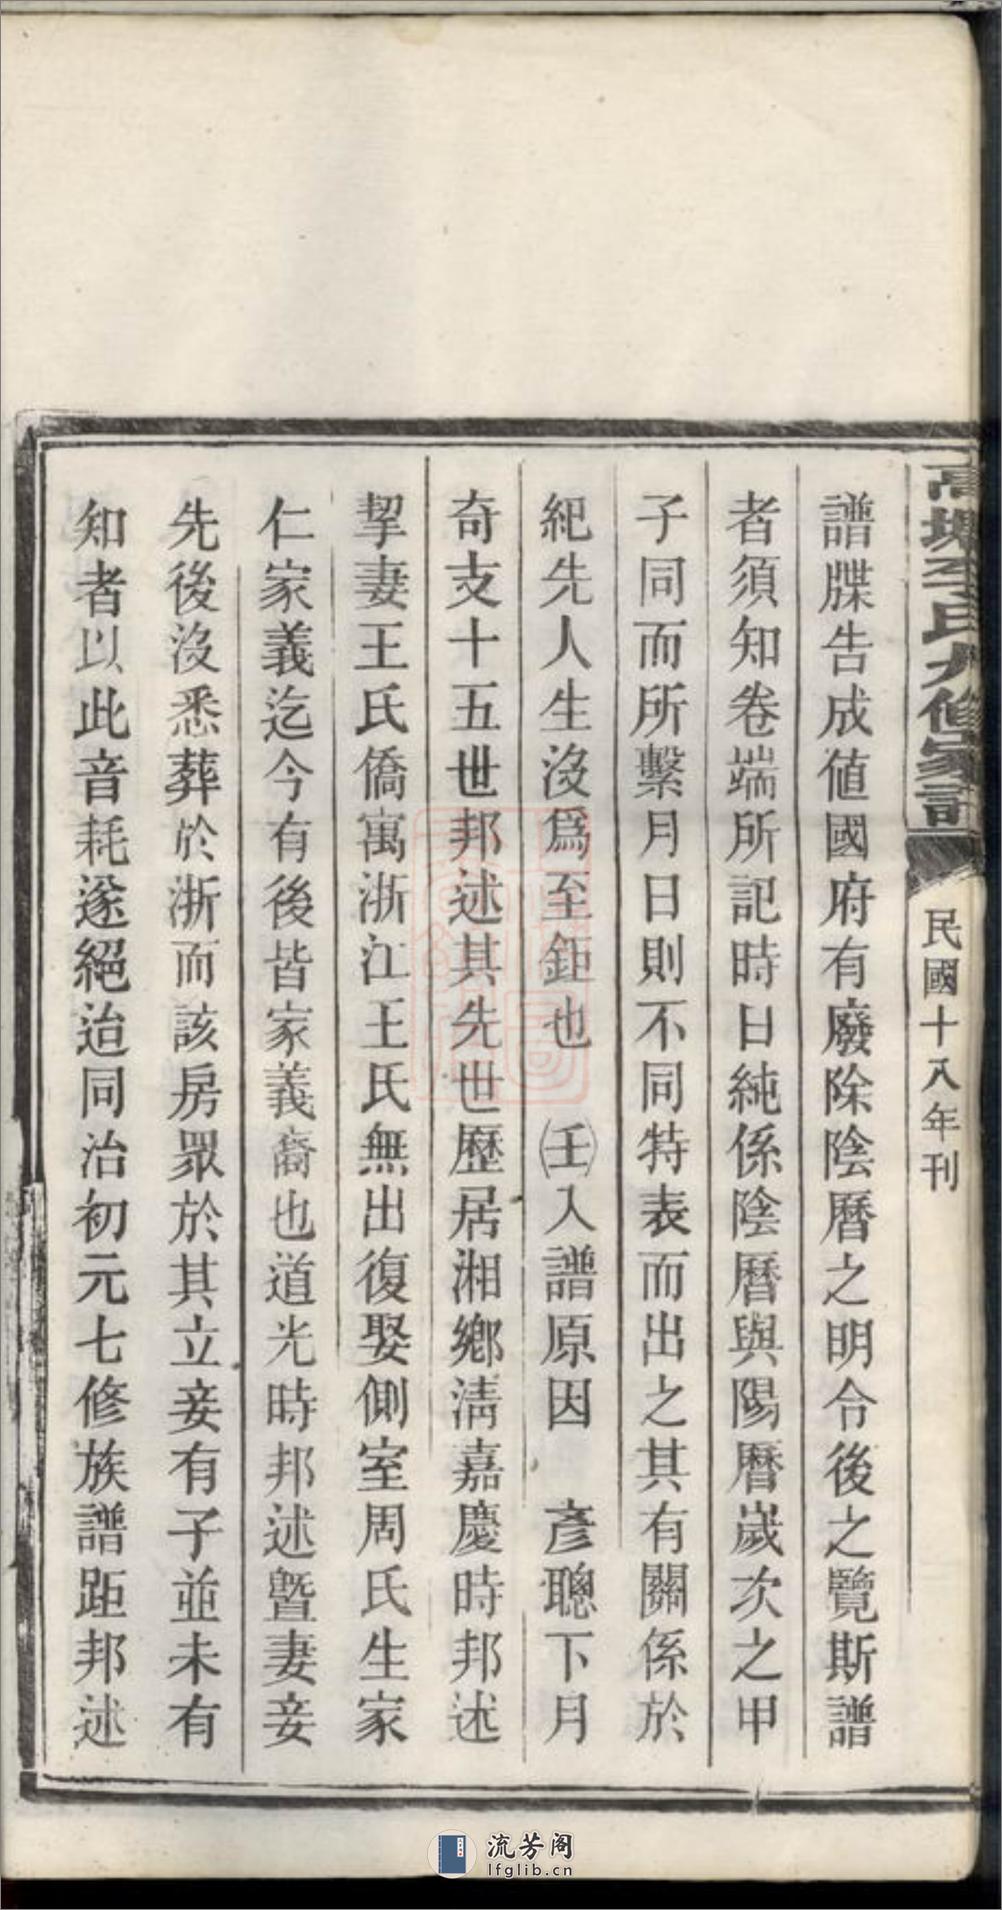 高塘李氏九修家譜
民國十八年刊
譜牒告成値國府有廢除陰曆之明令後之覽斯譜
者須知卷端所記時日純係陰曆與陽曆歲次之甲
子同而所繫月日則不同特表而出之其有關係於
紀先人生沒爲至鉅也　㊉入譜原因　彥聰下月
奇支十五世邦述其先世歷居湘鄕淸嘉慶時邦述
挈妻王氏僑寓浙江王氏無出復娶側室周氏生家
仁家義迄今有後皆家義裔也道光時邦述曁妻妾
先後沒悉葬於浙而該房眾於其立妾有子並未有
知者以此音耗遂絕迨同治初元七修族譜距邦述
流芳阁
lfglib.cn